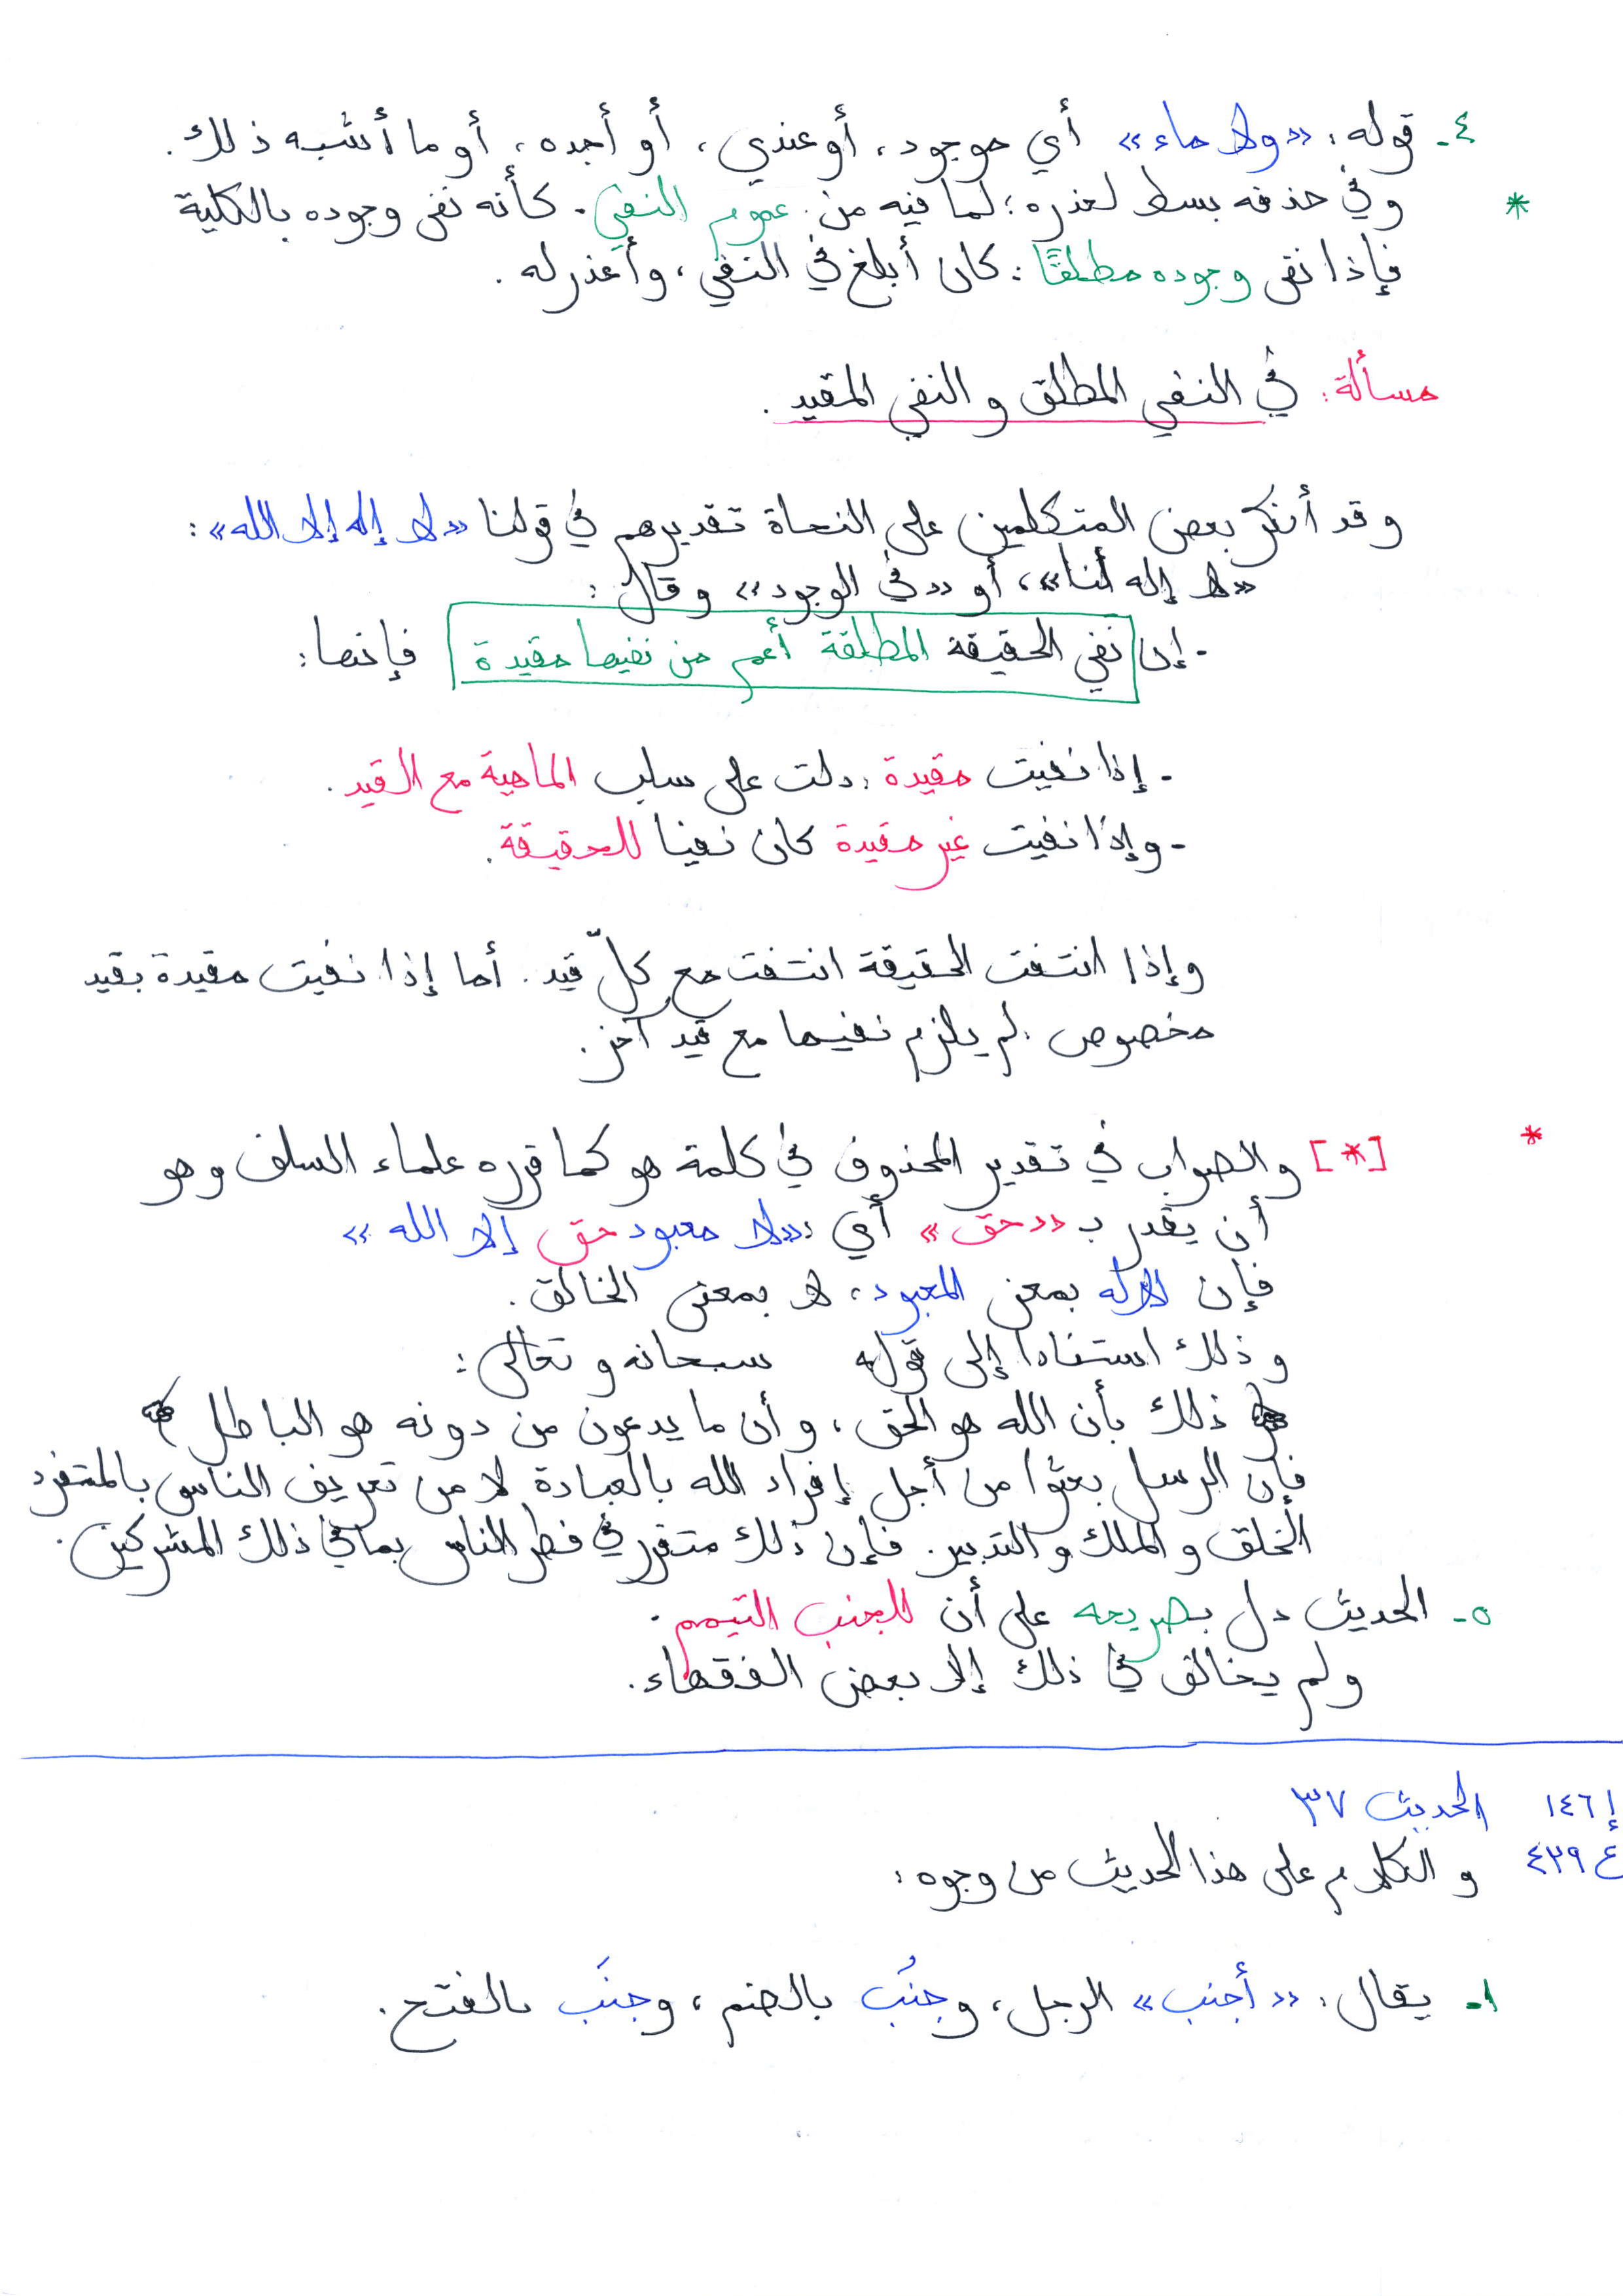 ٤- قوله: «ولا ماء» أي موجود، أو عندي، أو أجده، أو ما أشبه ذلك.
* وفي حذفه بسط لعذره؛ لما فيه من عموم النفي. كأنه نفى وجوده بالكلية
فإذا نفى وجوده مطلقًا: كان أبلغ في النفي، وأعذر له.
مسألة: في النفي المطلق و النفي المقيد.
وقد أنكر بعض المتكلمين على النحاة تقديرهم في قولنا «لا إله إلا الله»:
«لا إله لنا»، أو «في الوجود» وقال:
- إن نفي الحقيقة المطلقة أعم من نفيها مقيدة فإنها:
- إذا نفيت مقيدة: دلت على سلب الماهية مع القيد.
- وإذا نفيت غير مقيدة كان نفيا للحقيقة.
وإذا انتفت الحقيقة انتفت مع كلّ قيد. أما إذا نفيت مقيدة بقيد
مخصوص. لم يلزم نفيها مع قيد آخر.
* [*] والصواب في تقدير المحذوف في كلمة هو كما قرره علماء السلف وهو
أن يقدر بـ «حق» أي: «لا معبود حق إلا الله»
فإن الإله بمعنى المعبود، لا بمعنى الخالق.
وذلك استنادا إلى قوله سبحانه و تعالى:
﴿ ذلك بأن الله هو الحق، وأن ما يدعون من دونه هو الباطل ﴾
فإن الرسل بعثوا من أجل إفراد الله بالعبادة لا من تعريف الناس بالمتفرد
الخلق و الملك و التدبير. فإن ذلك متقرر في فطر الناس بما في ذلك المشركين.
٥- الحديث دل بصريحه على أن للجنب التيمم.
ولم يخالف في ذلك إلا بعض الفقهاء.
إ ١٤٦ الحديث ٣٧
ع ٤٣٩ و الكلام على هذا الحديث من وجوه:
١- يقال: «أجنب» الرجل، وجنُب بالضم، وجنَب بالفتح.